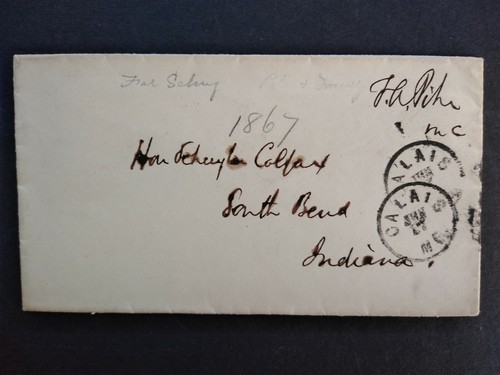 Free
F.A. Pike
M C
1867
Hon Schuyler Colfax
South Bend
Indiana
CALAIS
JAN
CALAIS
JAN
ME